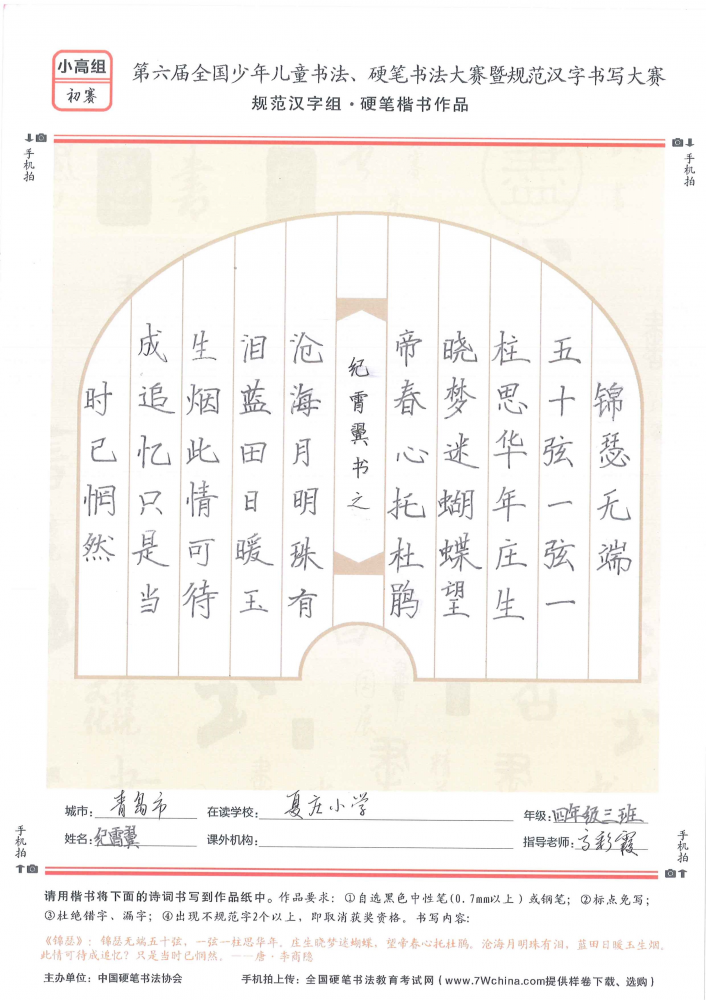 小高组
初赛
第六届全国少年儿童书法、硬笔书法大赛暨规范汉字书写大赛
规范汉字组·硬笔楷书作品
手机拍
手机拍
锦瑟无端
五十弦一弦一
柱思华年庄生
晓梦迷蝴蝶望
帝春心托杜鹃
纪霄翼书之
沧海月明珠有
泪蓝田日暖玉
生烟此情可待
成追忆只是当
时已惘然
城市:青岛市
在读学校:夏庄小学
年级:四年级三班
姓名:纪霄翼
课外机构:
指导老师:高彩霞
手机拍
手机拍
请用楷书将下面的诗词书写到作品纸中。作品要求:①自选黑色中性笔(0.7mm以上)或钢笔;②标点免写;
③杜绝错字、漏字;④出现不规范字2个以上,即取消获奖资格。书写内容:
《锦瑟》:锦瑟无端五十弦,一弦一柱思华年。庄生晓梦迷蝴蝶,望帝春心托杜鹃。沧海月明珠有泪,蓝田日暖玉生烟。
此情可待成追忆?只是当时已惘然。——唐·李商隐
主办单位:中国硬笔书法协会
手机拍上传:全国硬笔书法教育考试网(www.7Wchina.com提供样卷下载、选购)